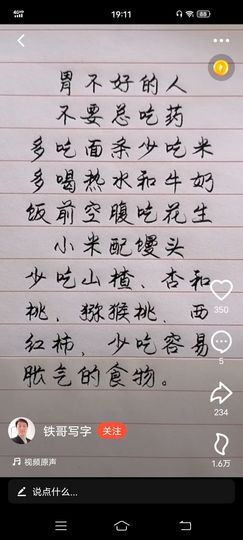 19:11
胃不好的人
不要总吃药
多吃面条少吃米
多喝热水和牛奶
饭前空腹吃花生
小米配馒头
少吃山楂、杏和
桃、猕猴桃、西
红柿、少吃容易
胀气的食物。
350
5
234
1.6万
铁哥写字
关注
视频原声
说点什么...